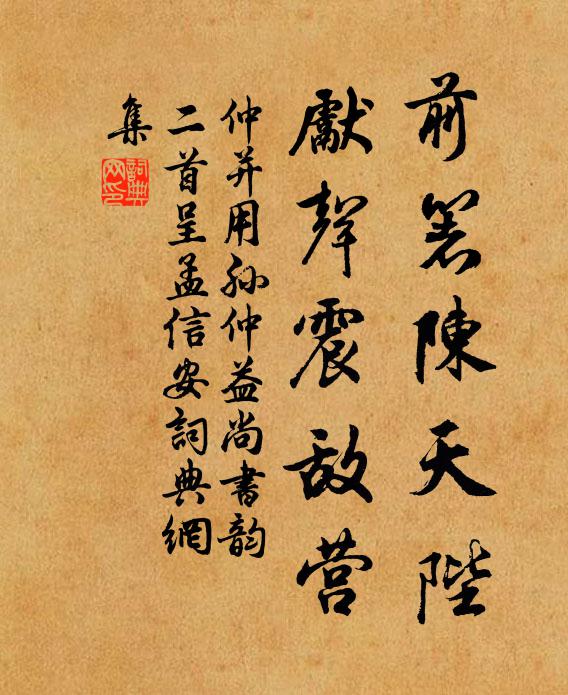 前箸陳天陛
獻聲震敌营
仲并用孫仲益尚書韵
二首呈孟信安詞典網
集
詞典
网印